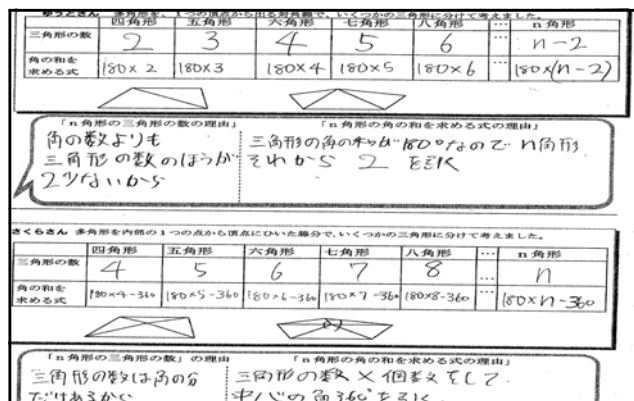 ゆうとさん 多角形を、1つの頂点から出る対角線で、いくつかの三角形に分けて考えました。
四角形 五角形 六角形 七角形 八角形 … n角形
三角形の数 2 3 4 5 6 … n-2
角の和を求める式 180×2 180×3 180×4 180×5 180×6 … 180×(n-2)
「n角形の三角形の数の理由」 「n角形の角の和を求める式の理由」
角の数よりも
三角形の数のほうが
2少ないから
三角形の角の和が180°なのでn角形
それから 2 を引く
さくらさん 多角形を内部の1つの点から頂点にひいた線分で、いくつかの三角形に分けて考えました。
四角形 五角形 六角形 七角形 八角形 … n角形
三角形の数 4 5 6 7 8 … n
角の和を求める式 180×4-360 180×5-360 180×6-360 180×7-360 180×8-360 … 180×n-360
「n角形の三角形の数」の理由 「n角形の角の和を求める式の理由」
三角形の数は角の分
だけあるから
三角形の数×個数をして
中心の角360°を引く